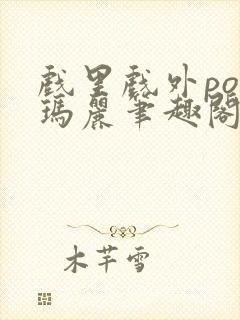 戲里戲外po
瑪麗筆趣閣
木芊雪